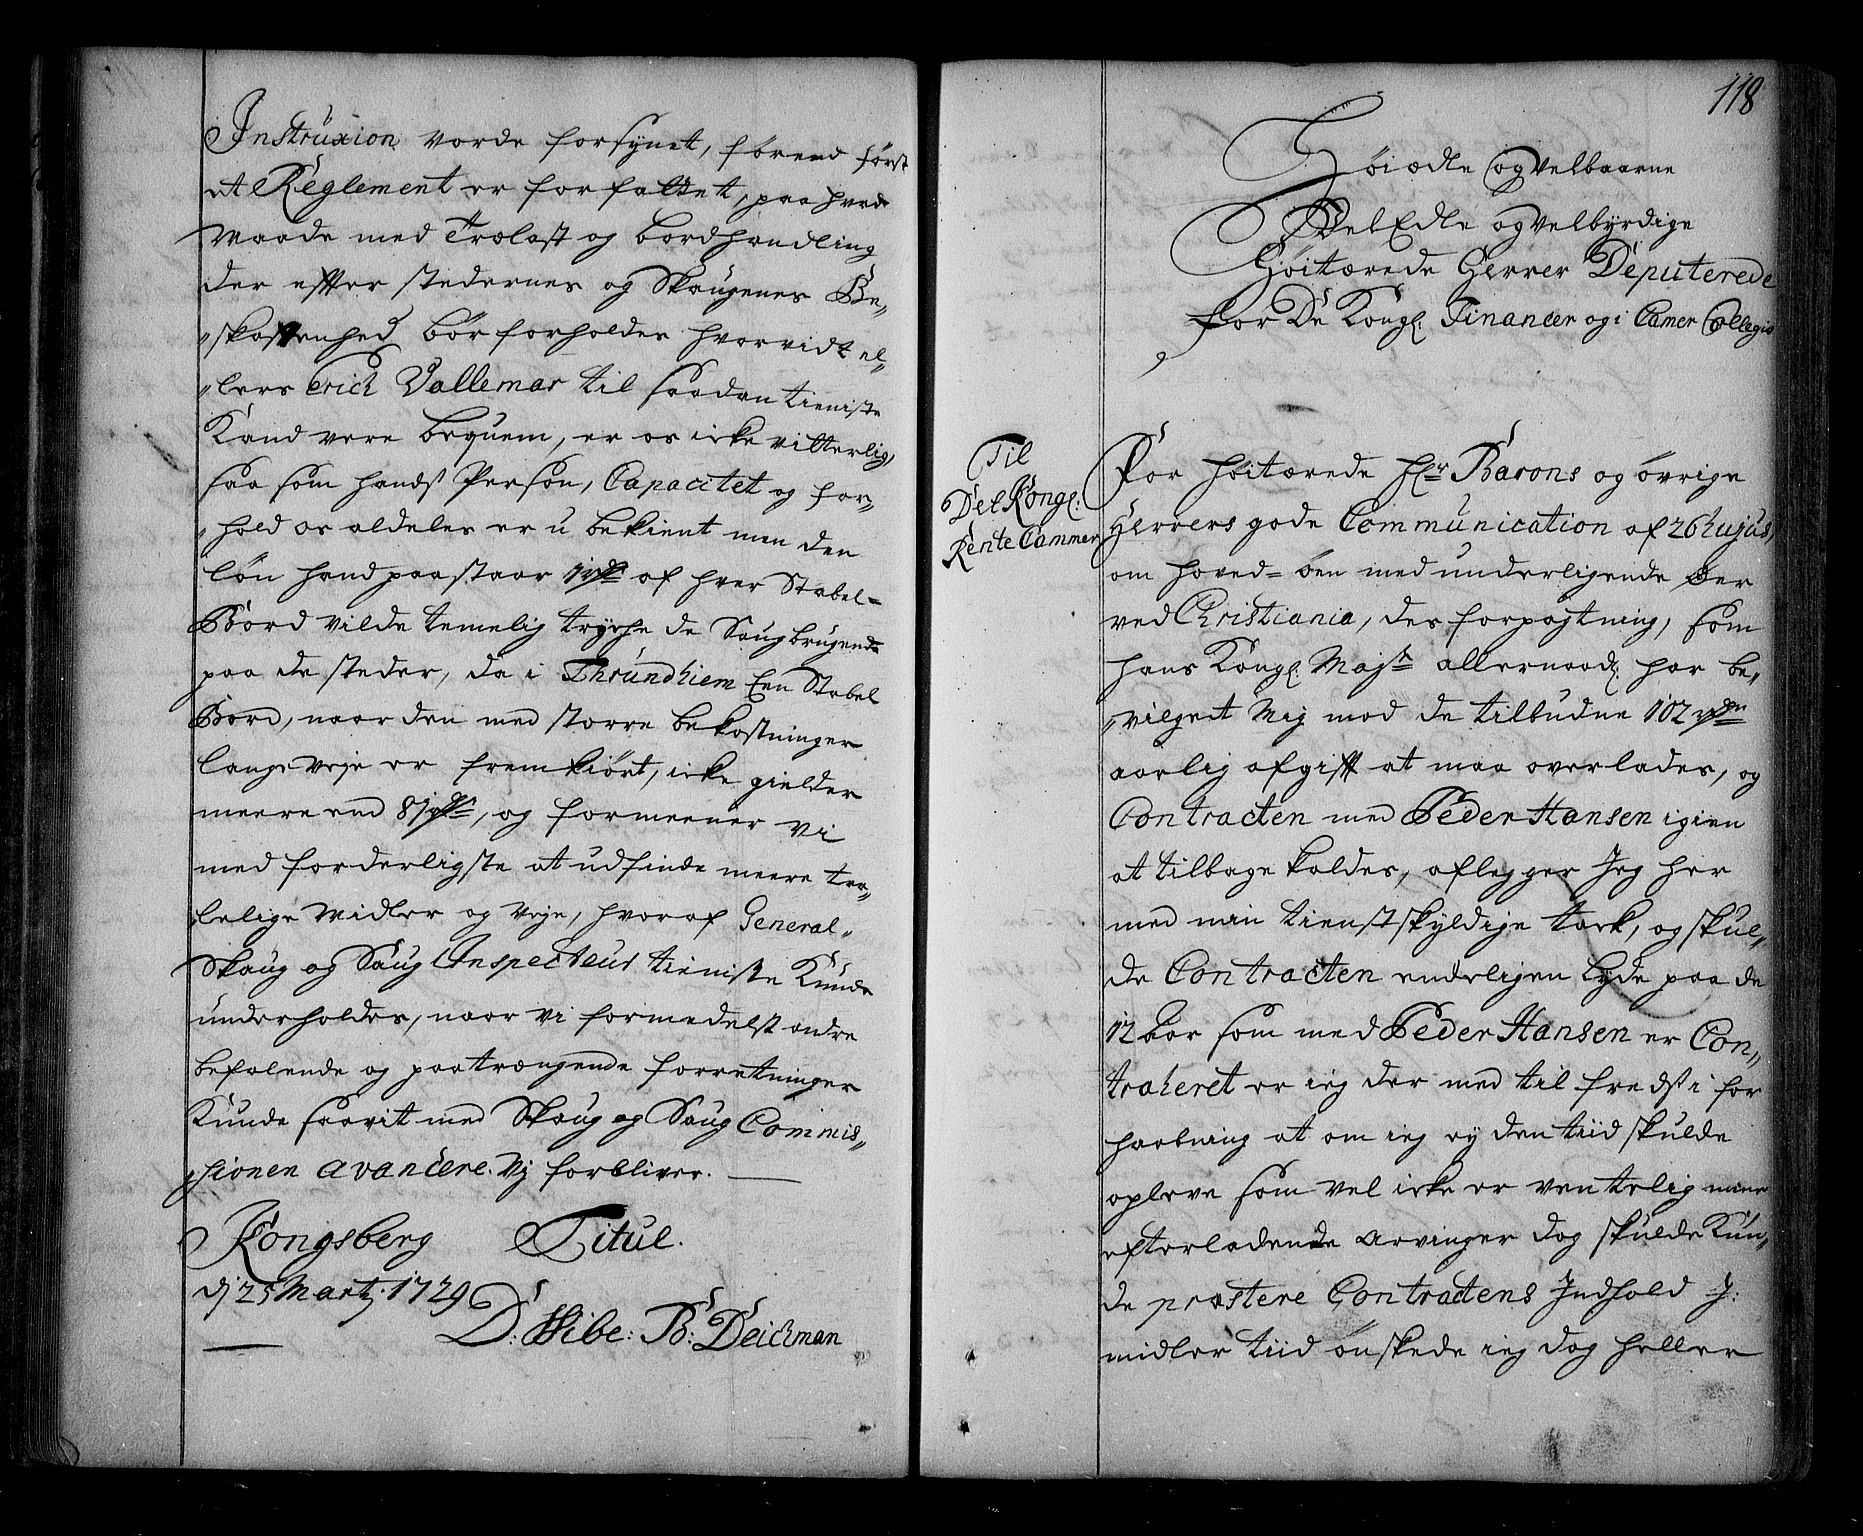 Instruxion vorde forsynet, førend først
et Reglement er forfattet, paa hvad
Maade med Trælast og bordhandling
der effter stedernes og Skougenes Be„
„skaffenhed bør forholdes hvorvidt el„
„lers Erich Vallemar til saadan tieniste
Kand vere bequem, er os icke vitterlig,
saa som hands Person, Capacitet og for„
„hold os aldeles er u bekient men den
løn hand paastaar 1 rdr af hver Stabel=
Bord vilde temelig trycke de Saugbrugende
paa de steder, da i Thrundhiem Een Stabel
Bord, naar den med storre bekostninger
lange Veje er fremkiørt, icke gielder
meere end 8 rdr, og formeener Vi
med forderligste at udfinde meere tra„
lelige Midler og Veje, hvoraf General„
Skoug og Saug Inspecteurs tieniste Kunde
underholdes, naar vi formedelst andre
befalende og paatrængende forretninger
Kunde saavit med Skoug og Saug Commis„
„sionen avancere. Vj forbliver.
Kongsberg Titul.
dj 25 Martj. 1729
D: Wibe: B: Deichman
118
Høiædle og Velbaarne
VelEdle og Velbyrdige
Høitærede Herrer Deputerede
for De Kongl. Financer og i Camer Collegio
Til
Det Kongl:
Rente Cammer
For høitærede Hr Barons og øvrige
Herrers gode Communication af 26 hujus,
om hoved=øen med underligende Øer
ved Christiania, des forpagtning, som
hans Kongl. Majts allernaadl. har be„
„vilget Mig mod de tilbudne 102 rdr
aarlig afgifft at maa overlades, og
Contracten med Peder Hansen igien
at tilbage kaldes, aflegger Jeg her
med min tienstskyldige tack, og skul„
de Contracten endeligen lyde paa de
12 Aar som med Peder Hansen er Con„
traheret er ieg der med til freds i for
haabning at om ieg ej den tiid skulde
opleve som vel icke er ventelig mine
efterladende arvinger dog skulde Kun„
de præstere Contractens Indhold J:
midler tiid ønskede ieg dog heller